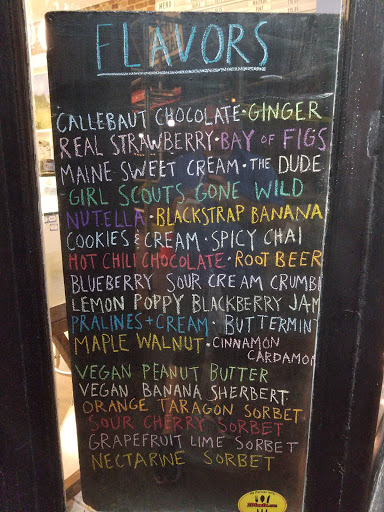 FLAVORS
CALLEBAUT CHOCOLATE · GINGER
REAL STRAWBERRY · BAY OF FIGS
MAINE SWEET CREAM · THE DUDE
GIRL SCOUTS GONE WILD
NUTELLA · BLACKSTRAP BANANA
COOKIES & CREAM · SPICY CHAI
HOT CHILI CHOCOLATE · ROOT BEER
BLUEBERRY SOUR CREAM CRUMB
LEMON POPPY BLACKBERRY JAM
PRALINES + CREAM · BUTTERMINT
MAPLE WALNUT · CINNAMON
CARDAMOM
VEGAN PEANUT BUTTER
VEGAN BANANA SHERBERT
ORANGE TARAGON SORBET
SOUR CHERRY SORBET
GRAPEFRUIT LIME SORBET
NECTARINE SORBET